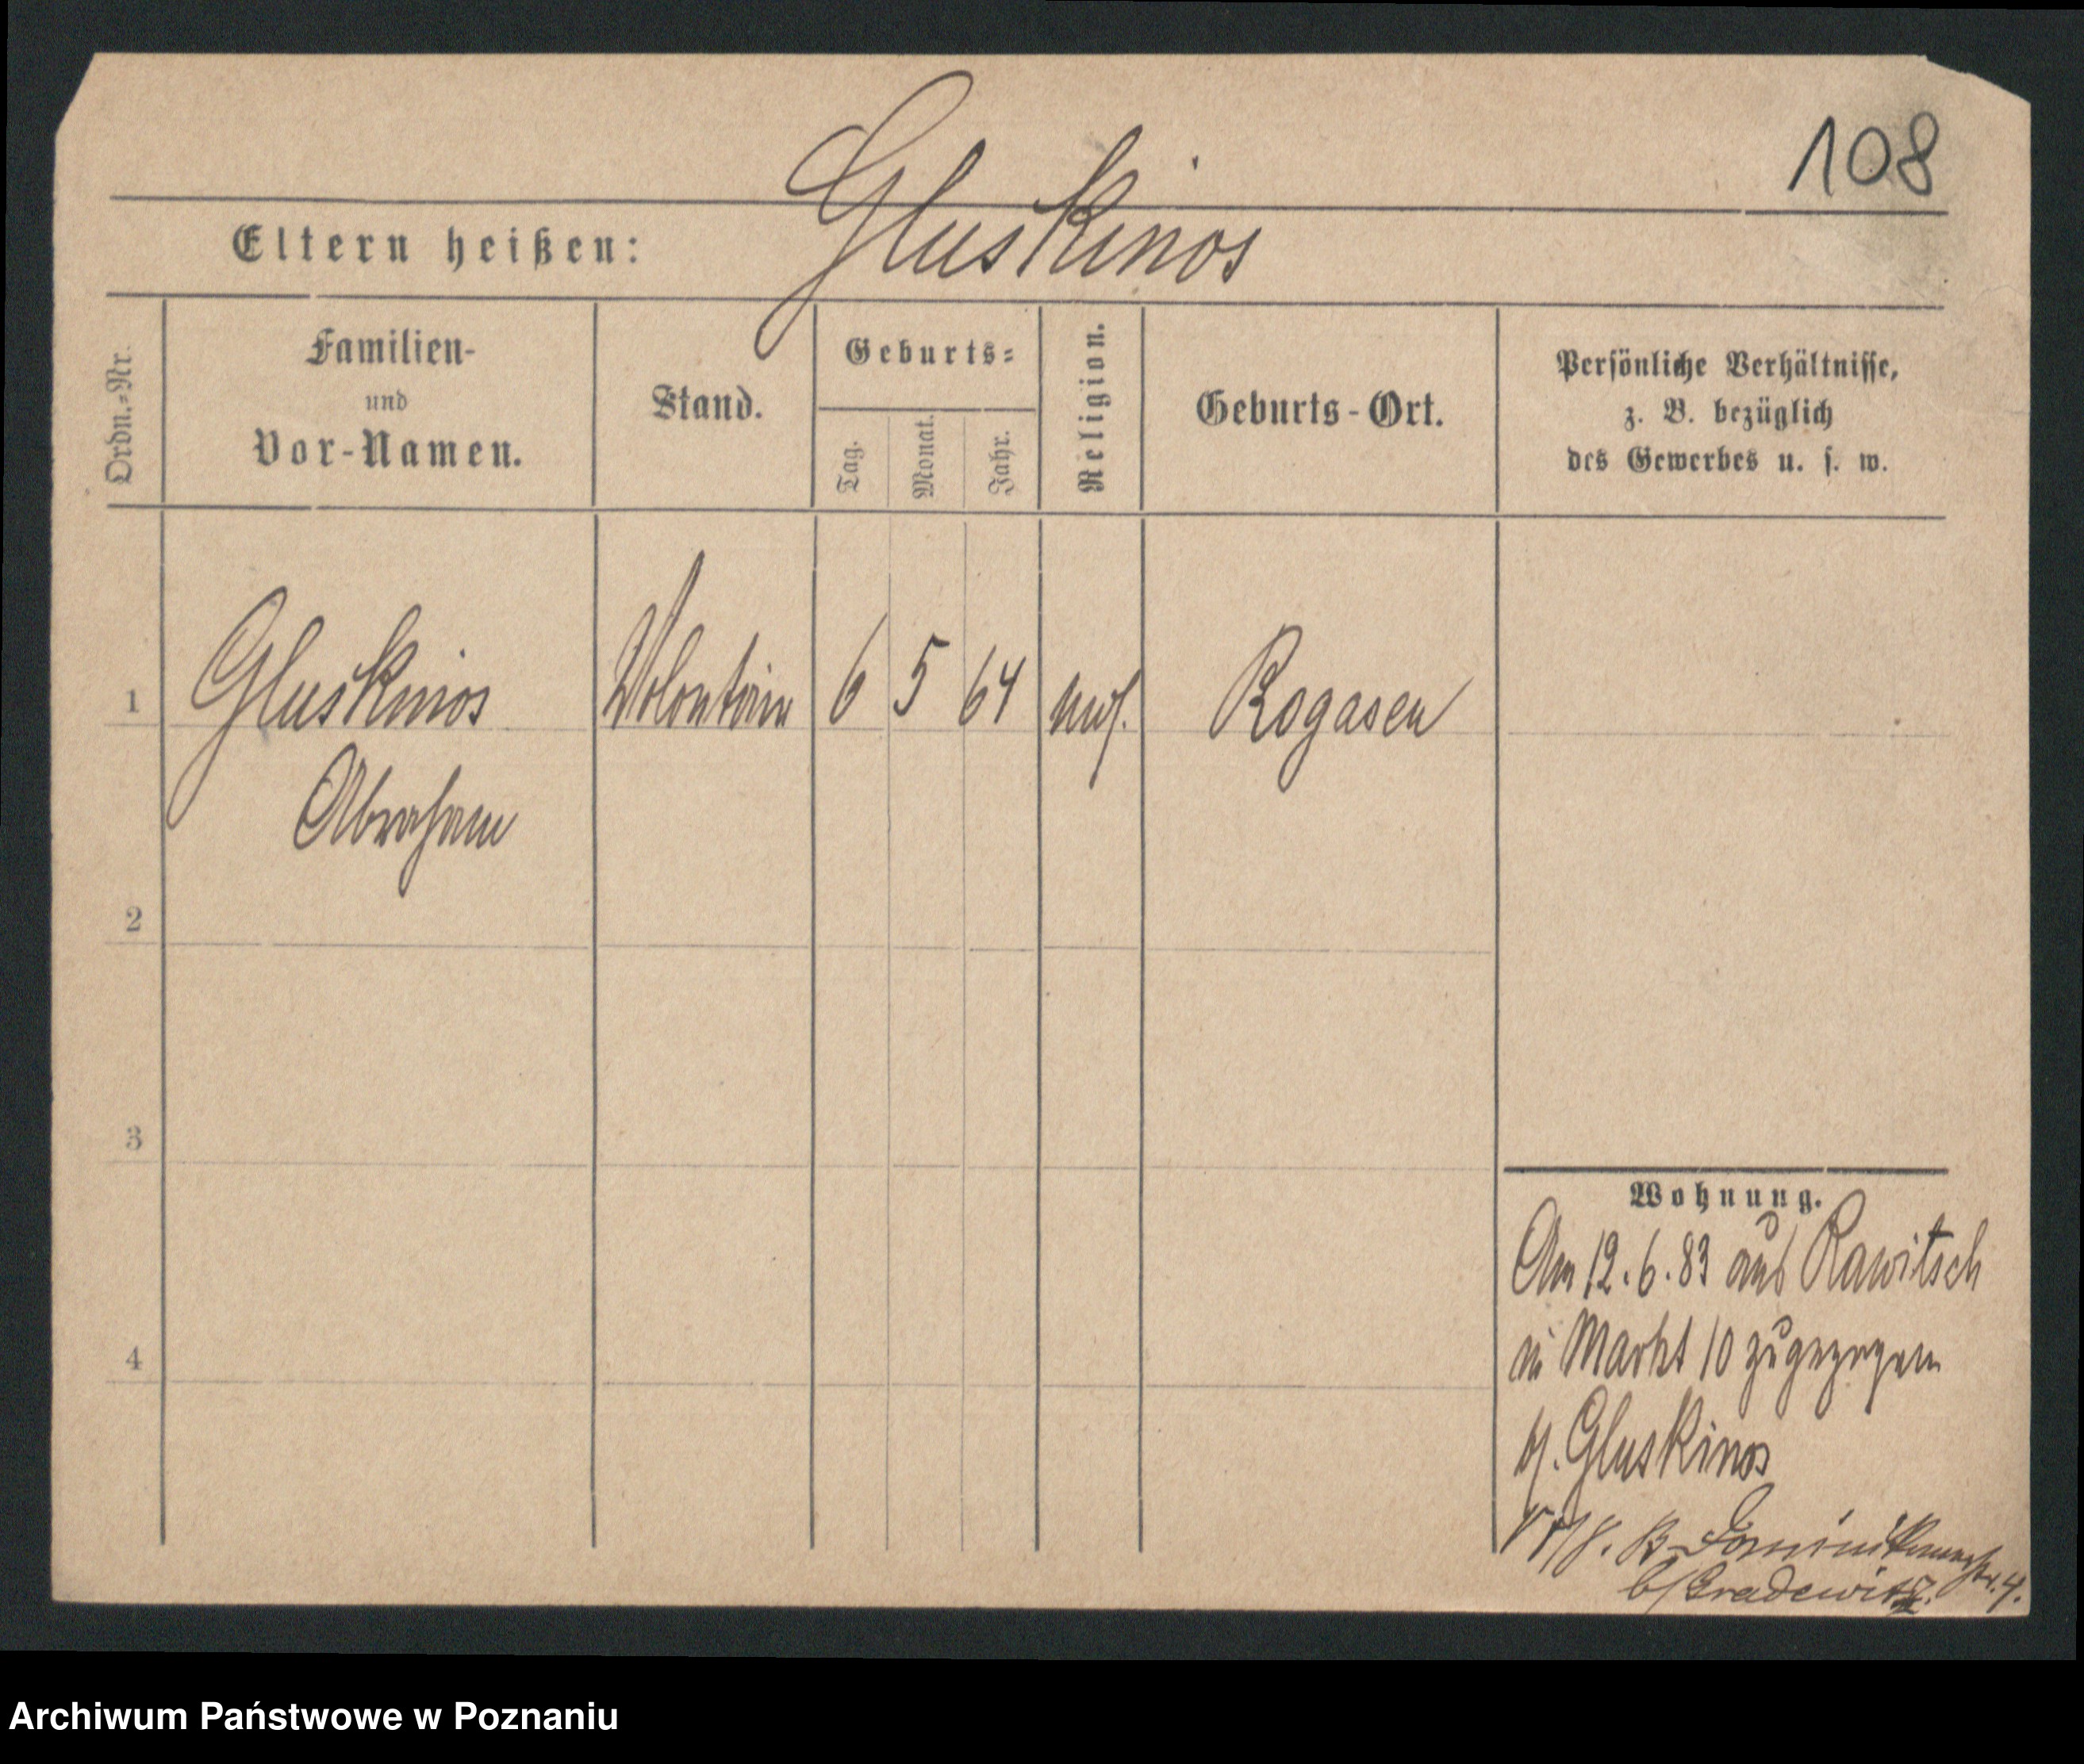 108
Gluskinos
Eltern heißen:
Ordn.-Nr.
Familien-
und
Vor-Namen.
Stand.
Geburts-
Tag.
Monat.
Jahr.
Religion.
Geburts-Ort.
Persönliche Verhältnisse,
z. B. bezüglich
des Gewerbes u. s. w.
1
Gluskinos
Volontair
6
5
64
mos.
Rogasen
Abraham
2
3
4
Wohnung.
Am 12.6.83 aus Rawitsch
in Markt 10 zugezogen
b/. Gluskinos
Dominikanerstr. 4.
b/ Gradewitz.
Archiwum Państwowe w Poznaniu